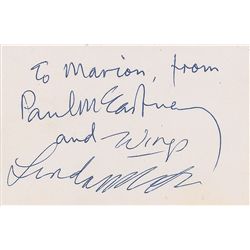 To Marion, from
Paul McCartney
and Wings
Linda McC